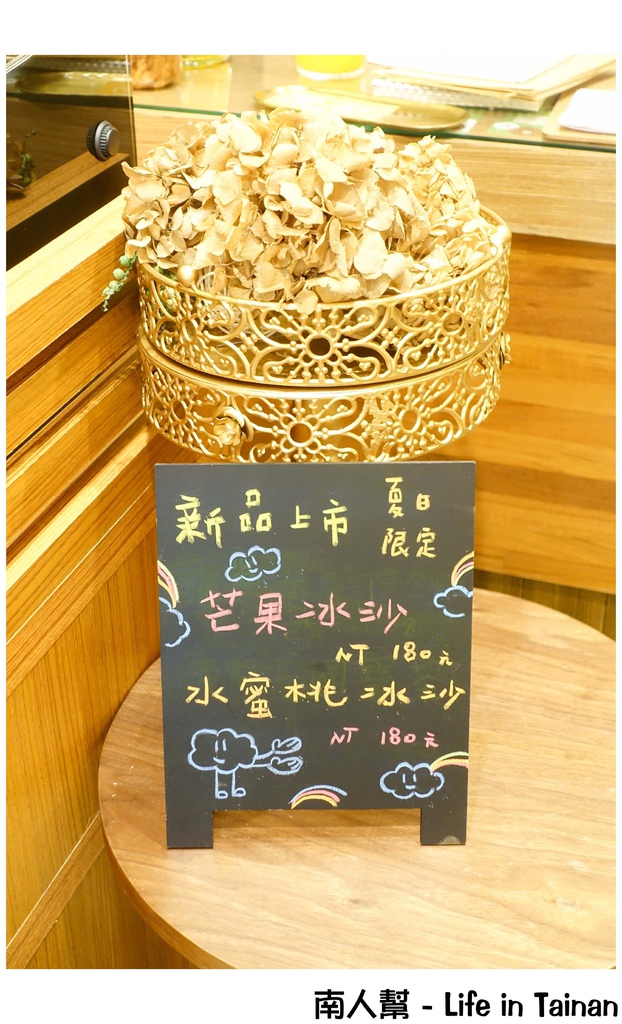 新品上市
夏日
限定
芒果冰沙
NT 180元
水蜜桃冰沙
NT 180元
南人幫 - Life in Tainan